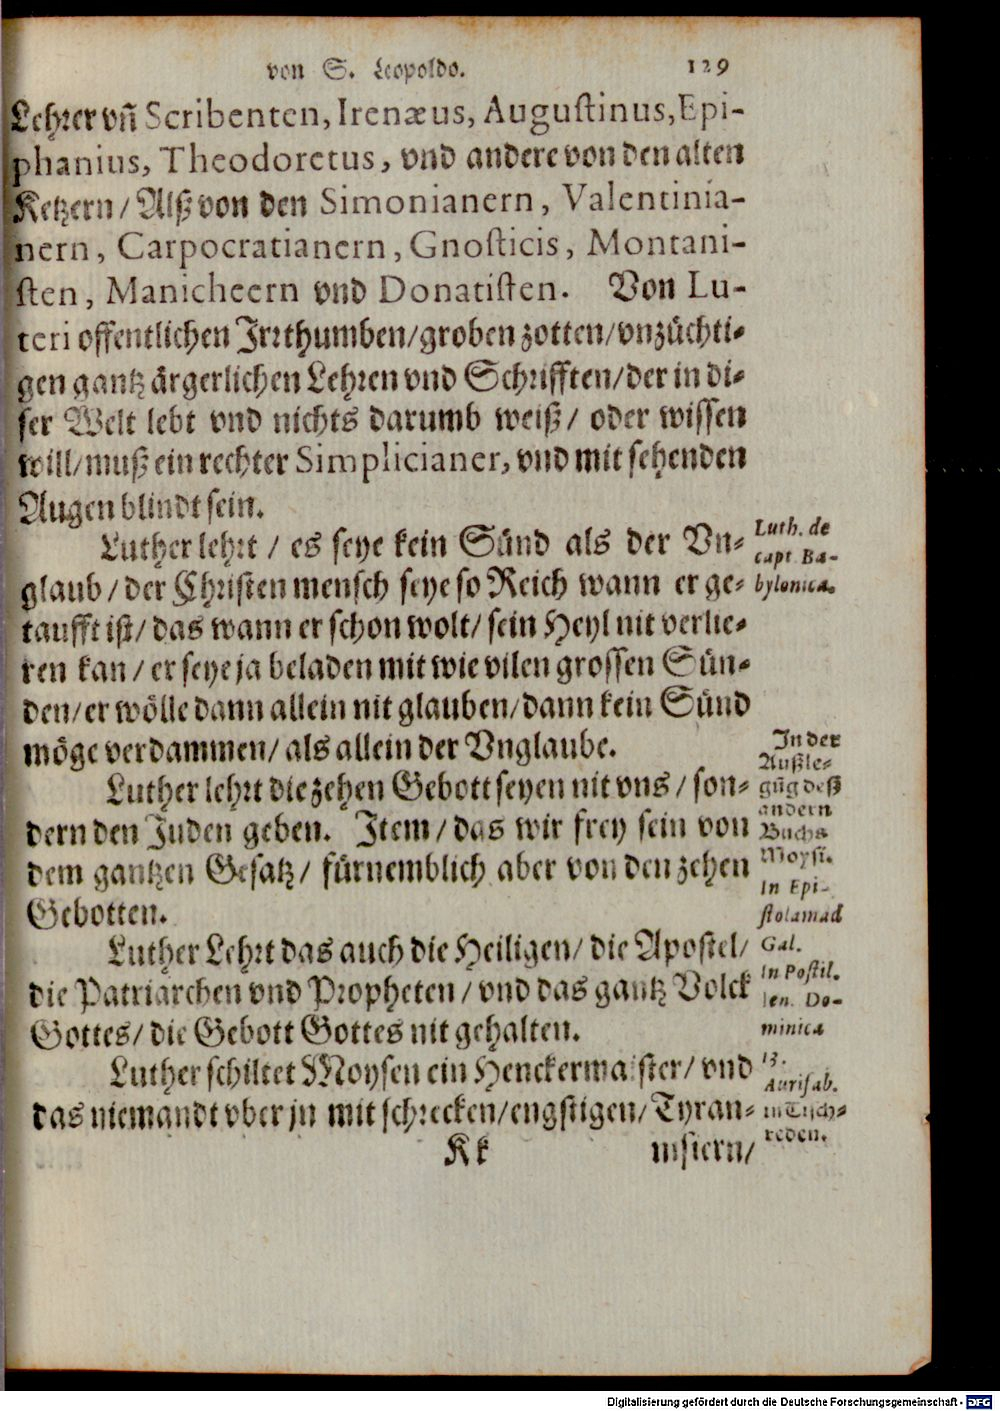 von S. Leopoldo. 129
Lehrer vñ Scribenten, Irenæus, Augustinus, Epi-
phanius, Theodoretus, vnd andere von den alten
Ketzern / Alß von den Simonianern, Valentinia-
nern, Carpocratianern, Gnosticis, Montani-
sten, Manicheern vnd Donatisten. Von Lu-
teri offentlichen Irrthumben/groben zotten/vnzüchti-
gen gantz ärgerlichen Lehren vnd Schrifften/der in di-
ser Welt lebt vnd nichts darumb weiß / oder wissen
will/muß ein rechter Simplicianer, vnd mit sehenden
Augen blindt sein.
Luther lehrt / es seye kein Sünd als der Vn-
glaub / der Christen mensch seye so Reich wann er ge-
taufft ist/ das wann er schon wolt/ sein Heyl nit verlie-
ren kan / er seye ja beladen mit wie vilen grossen Sün-
den/er wölle dann allein nit glauben/dann kein Sünd
möge verdammen/ als allein der Vnglaube.
Luth. de
capt. Ba-
bylonica.
Luther lehrt die zehen Gebott seyen nit vns / son-
dern den Juden geben. Item / das wir frey sein von
dem gantzen Gesatz / fürnemblich aber von den zehen
Gebotten.
In der
Außle-
gũg deß
andern
Buchs
Moysi.
In Epi-
stolam ad
Gal.
Luther Lehrt das auch die Heiligen/ die Apostel/
die Patriarchen vnd Propheten / vnd das gantz Volck
Gottes/ die Gebott Gottes nit gehalten.
In Postil.
len. Do-
minica
13.
Luther schiltet Moysen ein Henckermaister/ vnd
das niemandt vber jn mit schrecken/engstigen/Tyran-
Aurifab.
in Tisch-
reden.
Kk nisiern/
Digitalisierung gefördert durch die Deutsche Forschungsgemeinschaft - DFG